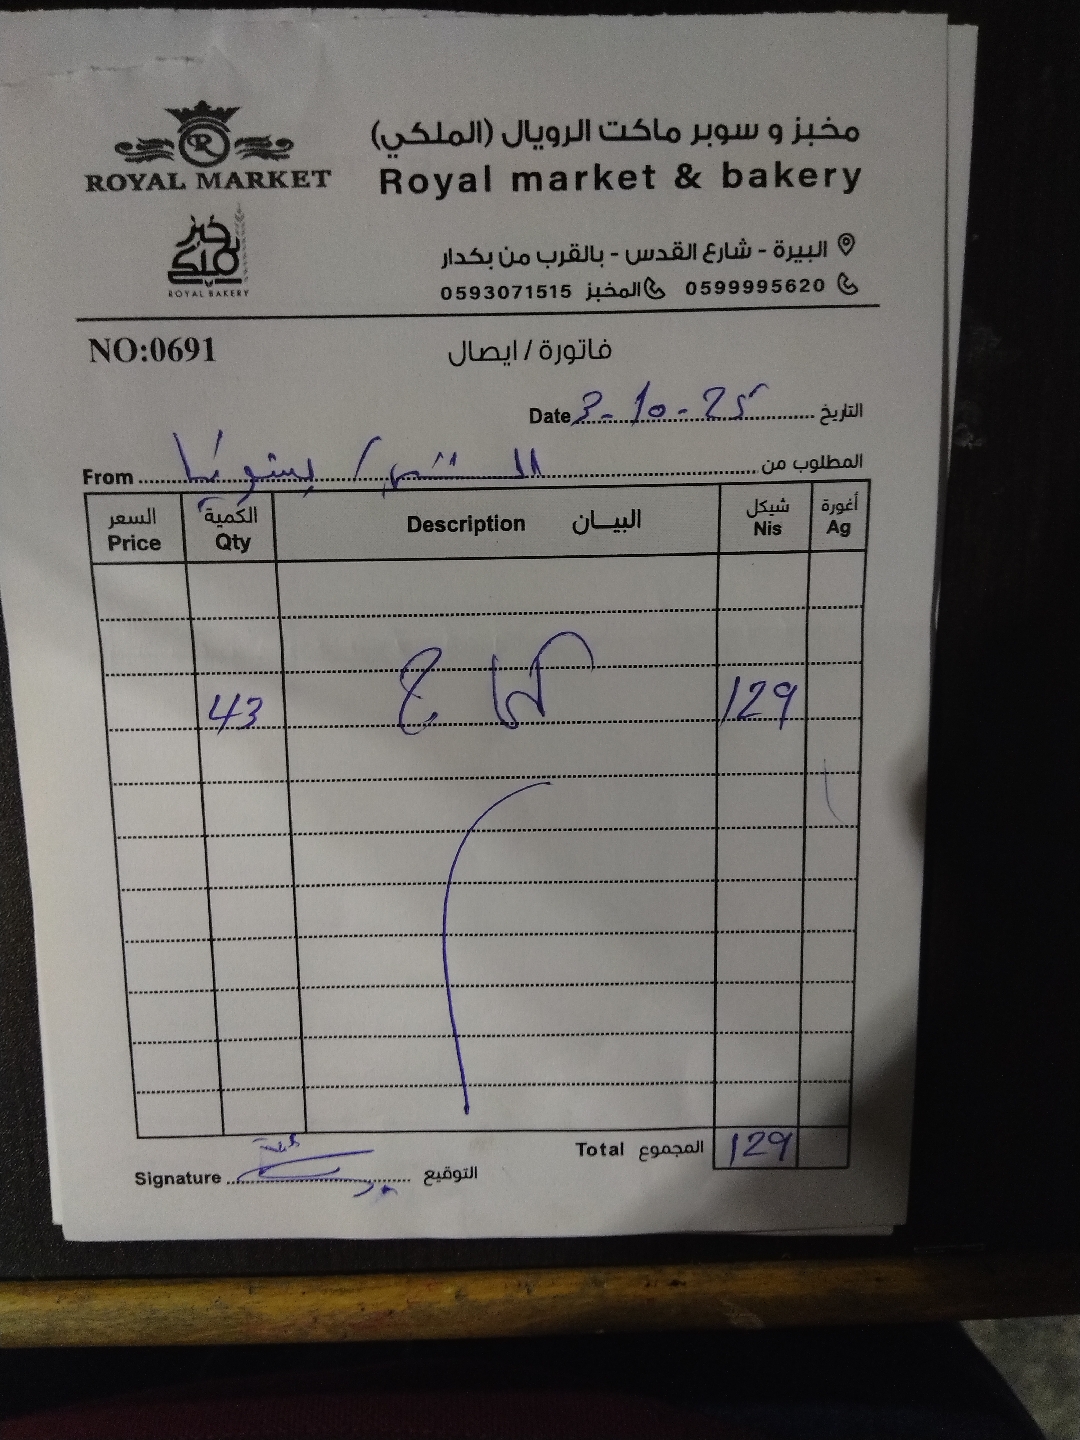 ROYAL MARKET
مخبز و سوبر ماكت الرويال (الملكي)
Royal market & bakery
خبز ملكي
ROYAL BAKERY
البيرة - شارع القدس - بالقرب من بكدار
0599995620 المخبز 0593071515
NO:0691
فاتورة / ايصال
Date 3-10-25 التاريخ
From المطلوب من
السعر الكمية البيــان شيكل أغورة
Price Qty Description Nis Ag
43 129
Total المجموع 129
Signature التوقيع